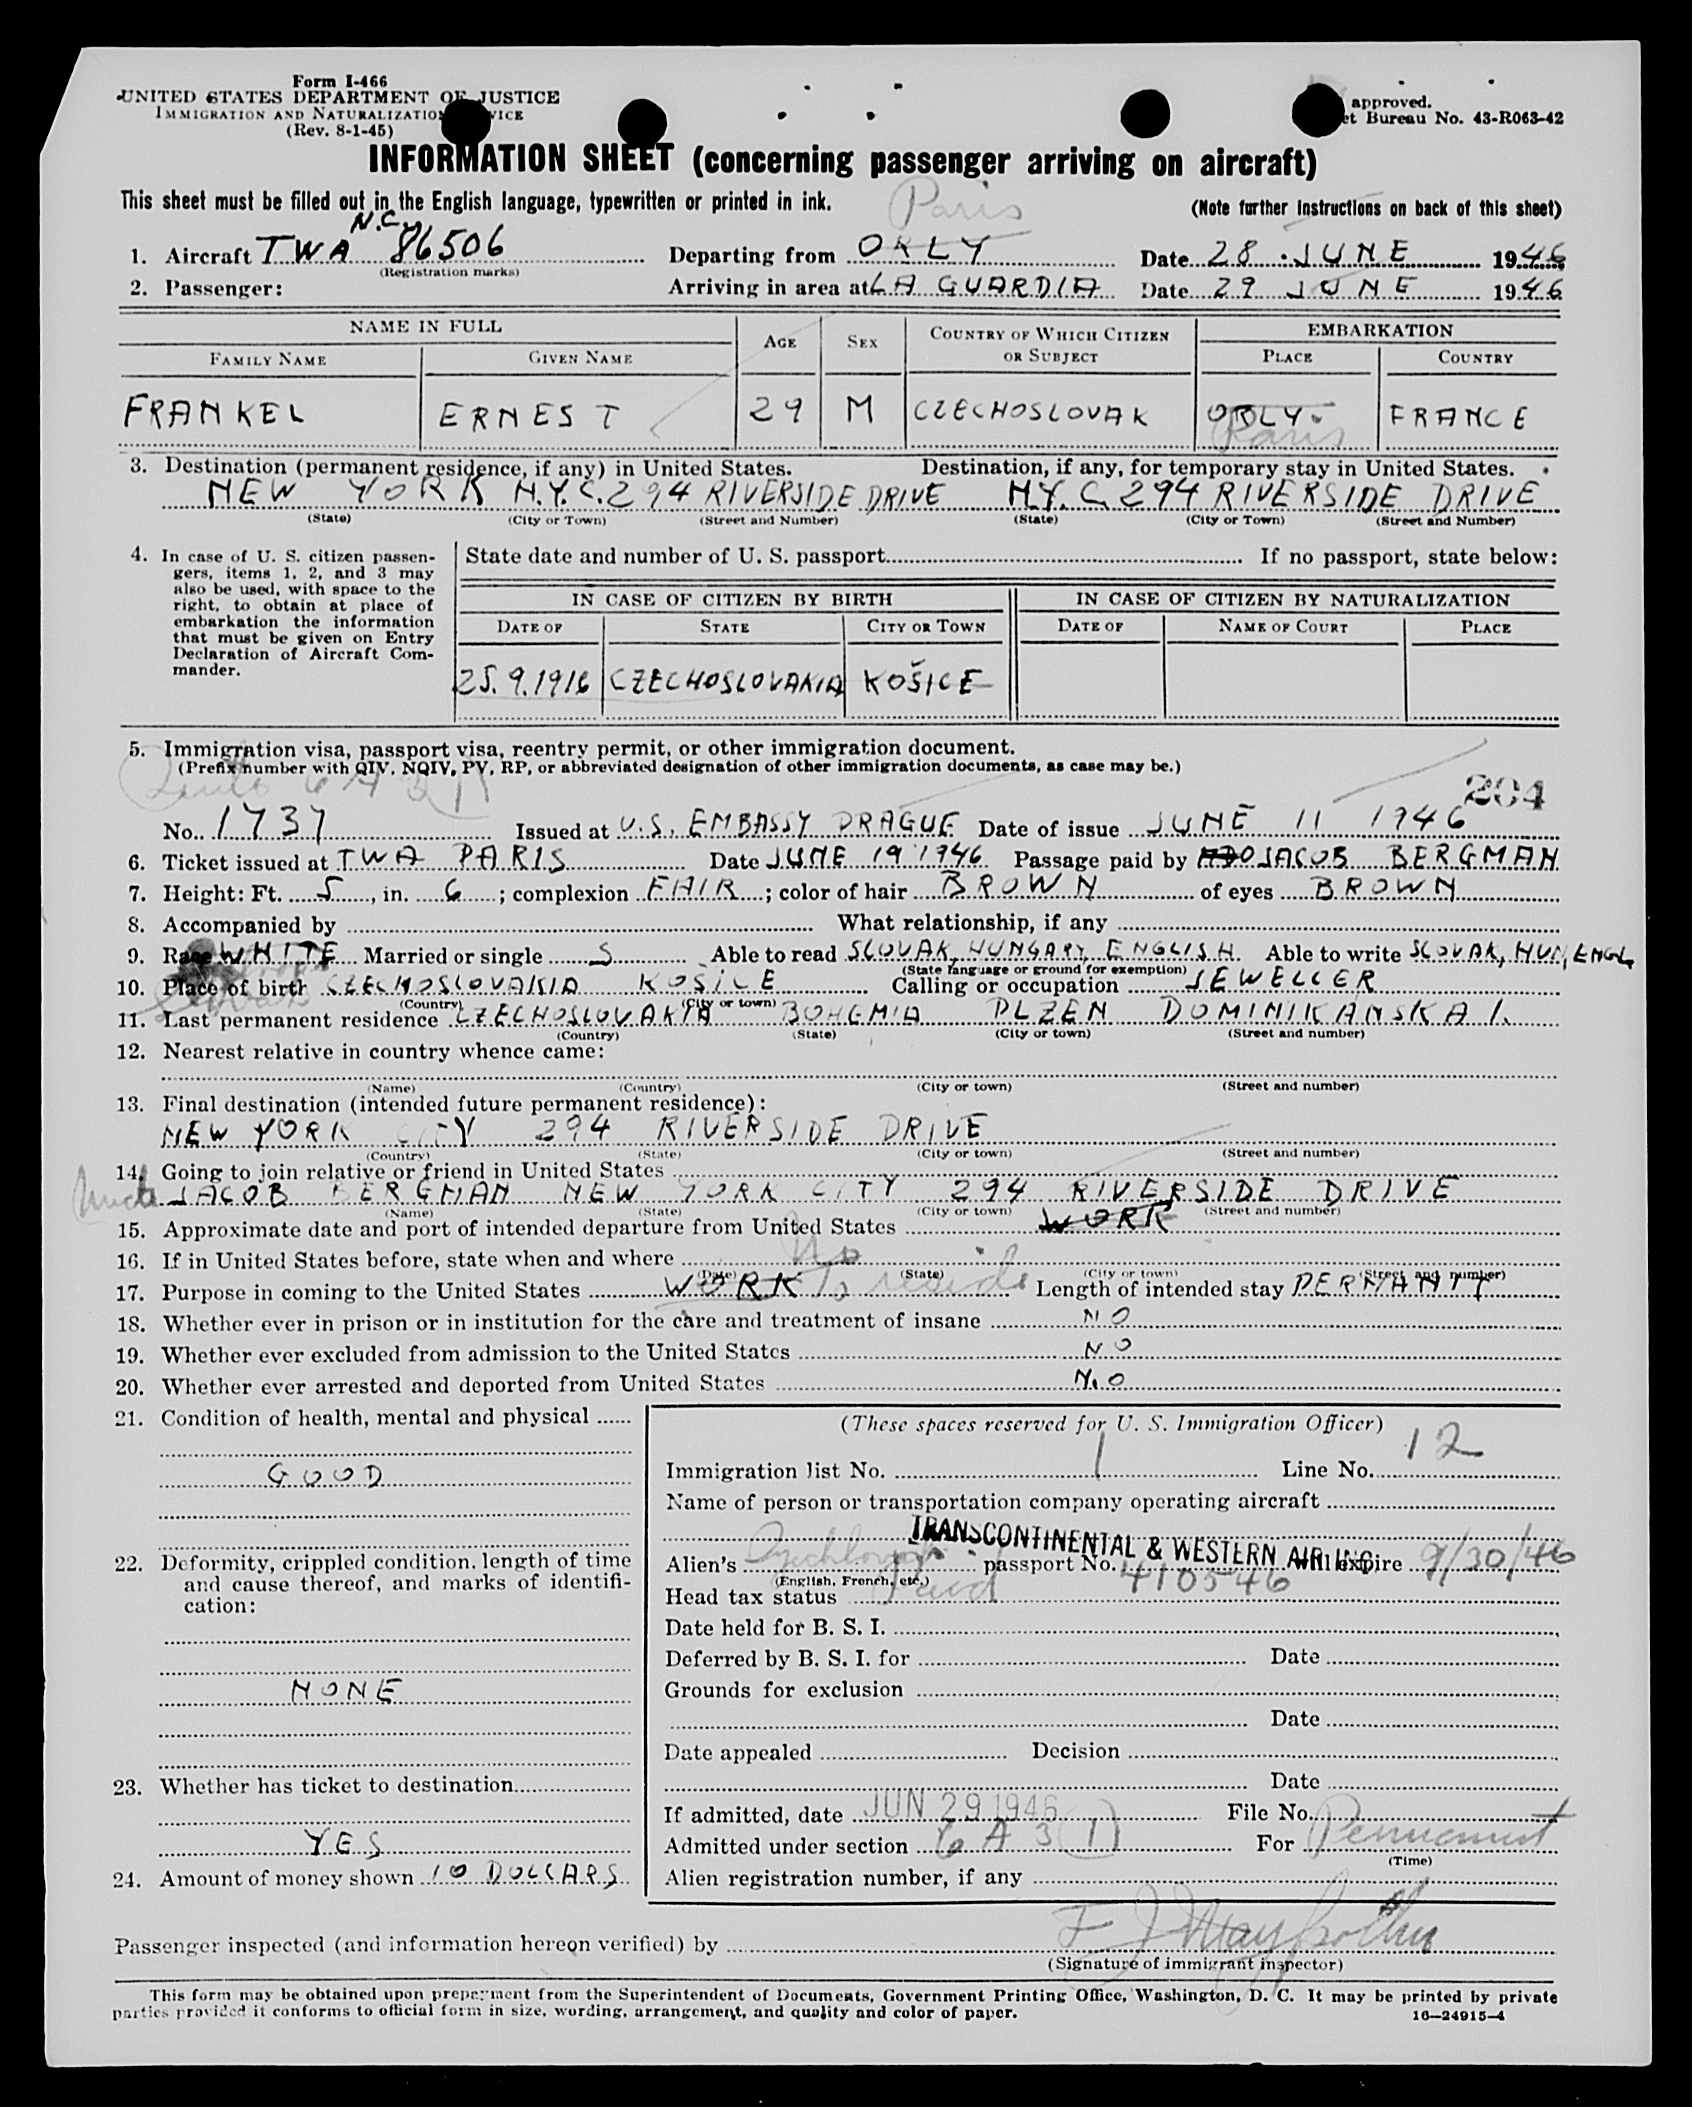 Form I-466
UNITED STATES DEPARTMENT OF JUSTICE
IMMIGRATION AND NATURALIZATION
(Rev. 8-1-45)
approved.
Bureau No. 43-R063-42
INFORMATION SHEET (concerning passenger arriving on aircraft)
This sheet must be filled out in the English language, typewritten or printed in ink.
(Note further instructions on back of this sheet)
Paris
N.C.
1. Aircraft TWA 86506 Departing from ORLY Date 28 JUNE 1946
(Registration marks)
2. Passenger: Arriving in area at LA GUARDIA Date 29 JUNE 1946
NAME IN FULL AGE SEX COUNTRY OF WHICH CITIZEN OR SUBJECT EMBARKATION
FAMILY NAME GIVEN NAME PLACE COUNTRY
FRANKEL ERNEST 29 M CZECHOSLOVAK ORLY FRANCE
Paris
3. Destination (permanent residence, if any) in United States. Destination, if any, for temporary stay in United States.
NEW YORK N.Y.C. 294 RIVERSIDE DRIVE N.Y.C. 294 RIVERSIDE DRIVE
(State) (City or Town) (Street and Number) (State) (City or Town) (Street and Number)
4. In case of U. S. citizen passen-
gers, items 1, 2, and 3 may
also be used, with space to the
right, to obtain at place of
embarkation the information
that must be given on Entry
Declaration of Aircraft Com-
mander.
State date and number of U. S. passport If no passport, state below:
IN CASE OF CITIZEN BY BIRTH IN CASE OF CITIZEN BY NATURALIZATION
DATE OF STATE CITY OR TOWN DATE OF NAME OF COURT PLACE
25.9.1916 CZECHOSLOVAKIA KOŠICE
5. Immigration visa, passport visa, reentry permit, or other immigration document.
(Prefix number with QIV, NQIV, PV, RP, or abbreviated designation of other immigration documents, as case may be.)
204
No. 1737 Issued at U.S. EMBASSY PRAGUE Date of issue JUNE 11 1946
6. Ticket issued at TWA PARIS Date JUNE 19 1946 Passage paid by JACOB BERGMAN
7. Height: Ft. 5, in. 6; complexion FAIR; color of hair BROWN of eyes BROWN
8. Accompanied by What relationship, if any
9. Race WHITE Married or single S Able to read SLOVAK, HUNGARY, ENGLISH Able to write SLOVAK, HUN, ENGL
(State language or ground for exemption)
10. Place of birth CZECHOSLOVAKIA KOSICE Calling or occupation JEWELLER
(Country) (City or town)
11. Last permanent residence CZECHOSLOVAKIA BOHEMIA PLZEN DOMINIKANSKA 1.
(Country) (State) (City or town) (Street and number)
12. Nearest relative in country whence came:
(Name) (Country) (City or town) (Street and number)
13. Final destination (intended future permanent residence):
NEW YORK CITY 294 RIVERSIDE DRIVE
(Country) (State) (City or town) (Street and number)
14. Going to join relative or friend in United States
Uncle JACOB BERGMAN NEW YORK CITY 294 RIVERSIDE DRIVE
(Name) (State) (City or town) (Street and number)
15. Approximate date and port of intended departure from United States WORK
16. If in United States before, state when and where No
(Date) (State) (City or town) (Street and number)
17. Purpose in coming to the United States WORK To reside Length of intended stay PERMANIT
18. Whether ever in prison or in institution for the care and treatment of insane NO
19. Whether ever excluded from admission to the United States NO
20. Whether ever arrested and deported from United States NO
21. Condition of health, mental and physical
GOOD
22. Deformity, crippled condition, length of time
and cause thereof, and marks of identifi-
cation:
NONE
23. Whether has ticket to destination
YES
24. Amount of money shown 10 DOLLARS
(These spaces reserved for U. S. Immigration Officer)
Immigration list No. 1 Line No. 12
Name of person or transportation company operating aircraft
TRANSCONTINENTAL & WESTERN AIR INC.
Alien's passport No. 410546 will expire 9/30/46
(English, French, etc.)
Head tax status Paid
Date held for B. S. I.
Deferred by B. S. I. for Date
Grounds for exclusion
Date
Date appealed Decision
Date
If admitted, date JUN 29 1946 File No.
Admitted under section 6 A 3 (1) For Permanent
(Time)
Alien registration number, if any
Passenger inspected (and information hereon verified) by
(Signature of immigrant inspector)
This form may be obtained upon prepayment from the Superintendent of Documents, Government Printing Office, Washington, D. C. It may be printed by private
parties provided it conforms to official form in size, wording, arrangement, and quality and color of paper.
16—24915-4